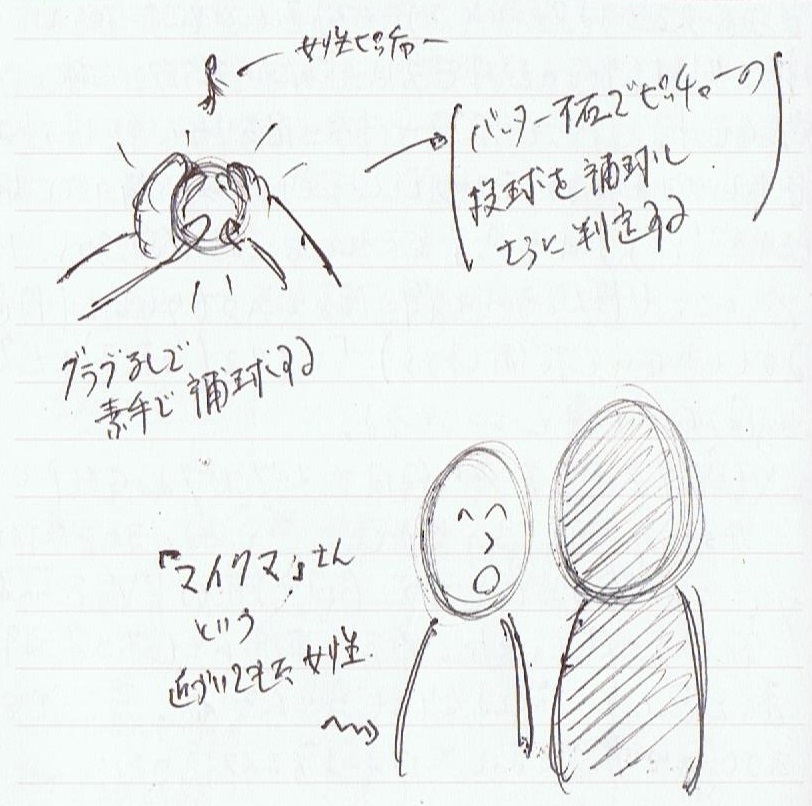 女性ピッチャー
バッター不在でピッチャーの
投球を補球し
さらに判定する
グラブなしで
素手で補球する
『マイクマ』さん
という
近づいてきた女性.